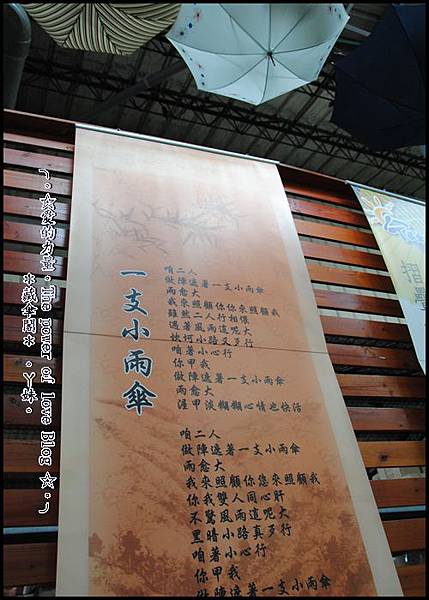 ╭。☆愛的力量。The power of love Blog☆。╯
＊藏傘閣＊。ㄚ妹。
一支小雨傘
咱二人
做陣遮著一支小雨傘
雨愈大
我來照顧你你來照顧我
雖然二人行相偎
遇著風雨這呢大
坎坷小路又歹行
咱著小心行
你甲我
做陣遮著一支小雨傘
雨愈大
淫甲淡糊糊心情也快活
咱二人
做陣遮著一支小雨傘
雨愈大
我來照顧你您來照顧我
你我雙人同心肝
不驚風雨這呢大
黑暗小路真歹行
咱著小心行
你甲我
做陣遮著一支小雨傘
摺疊